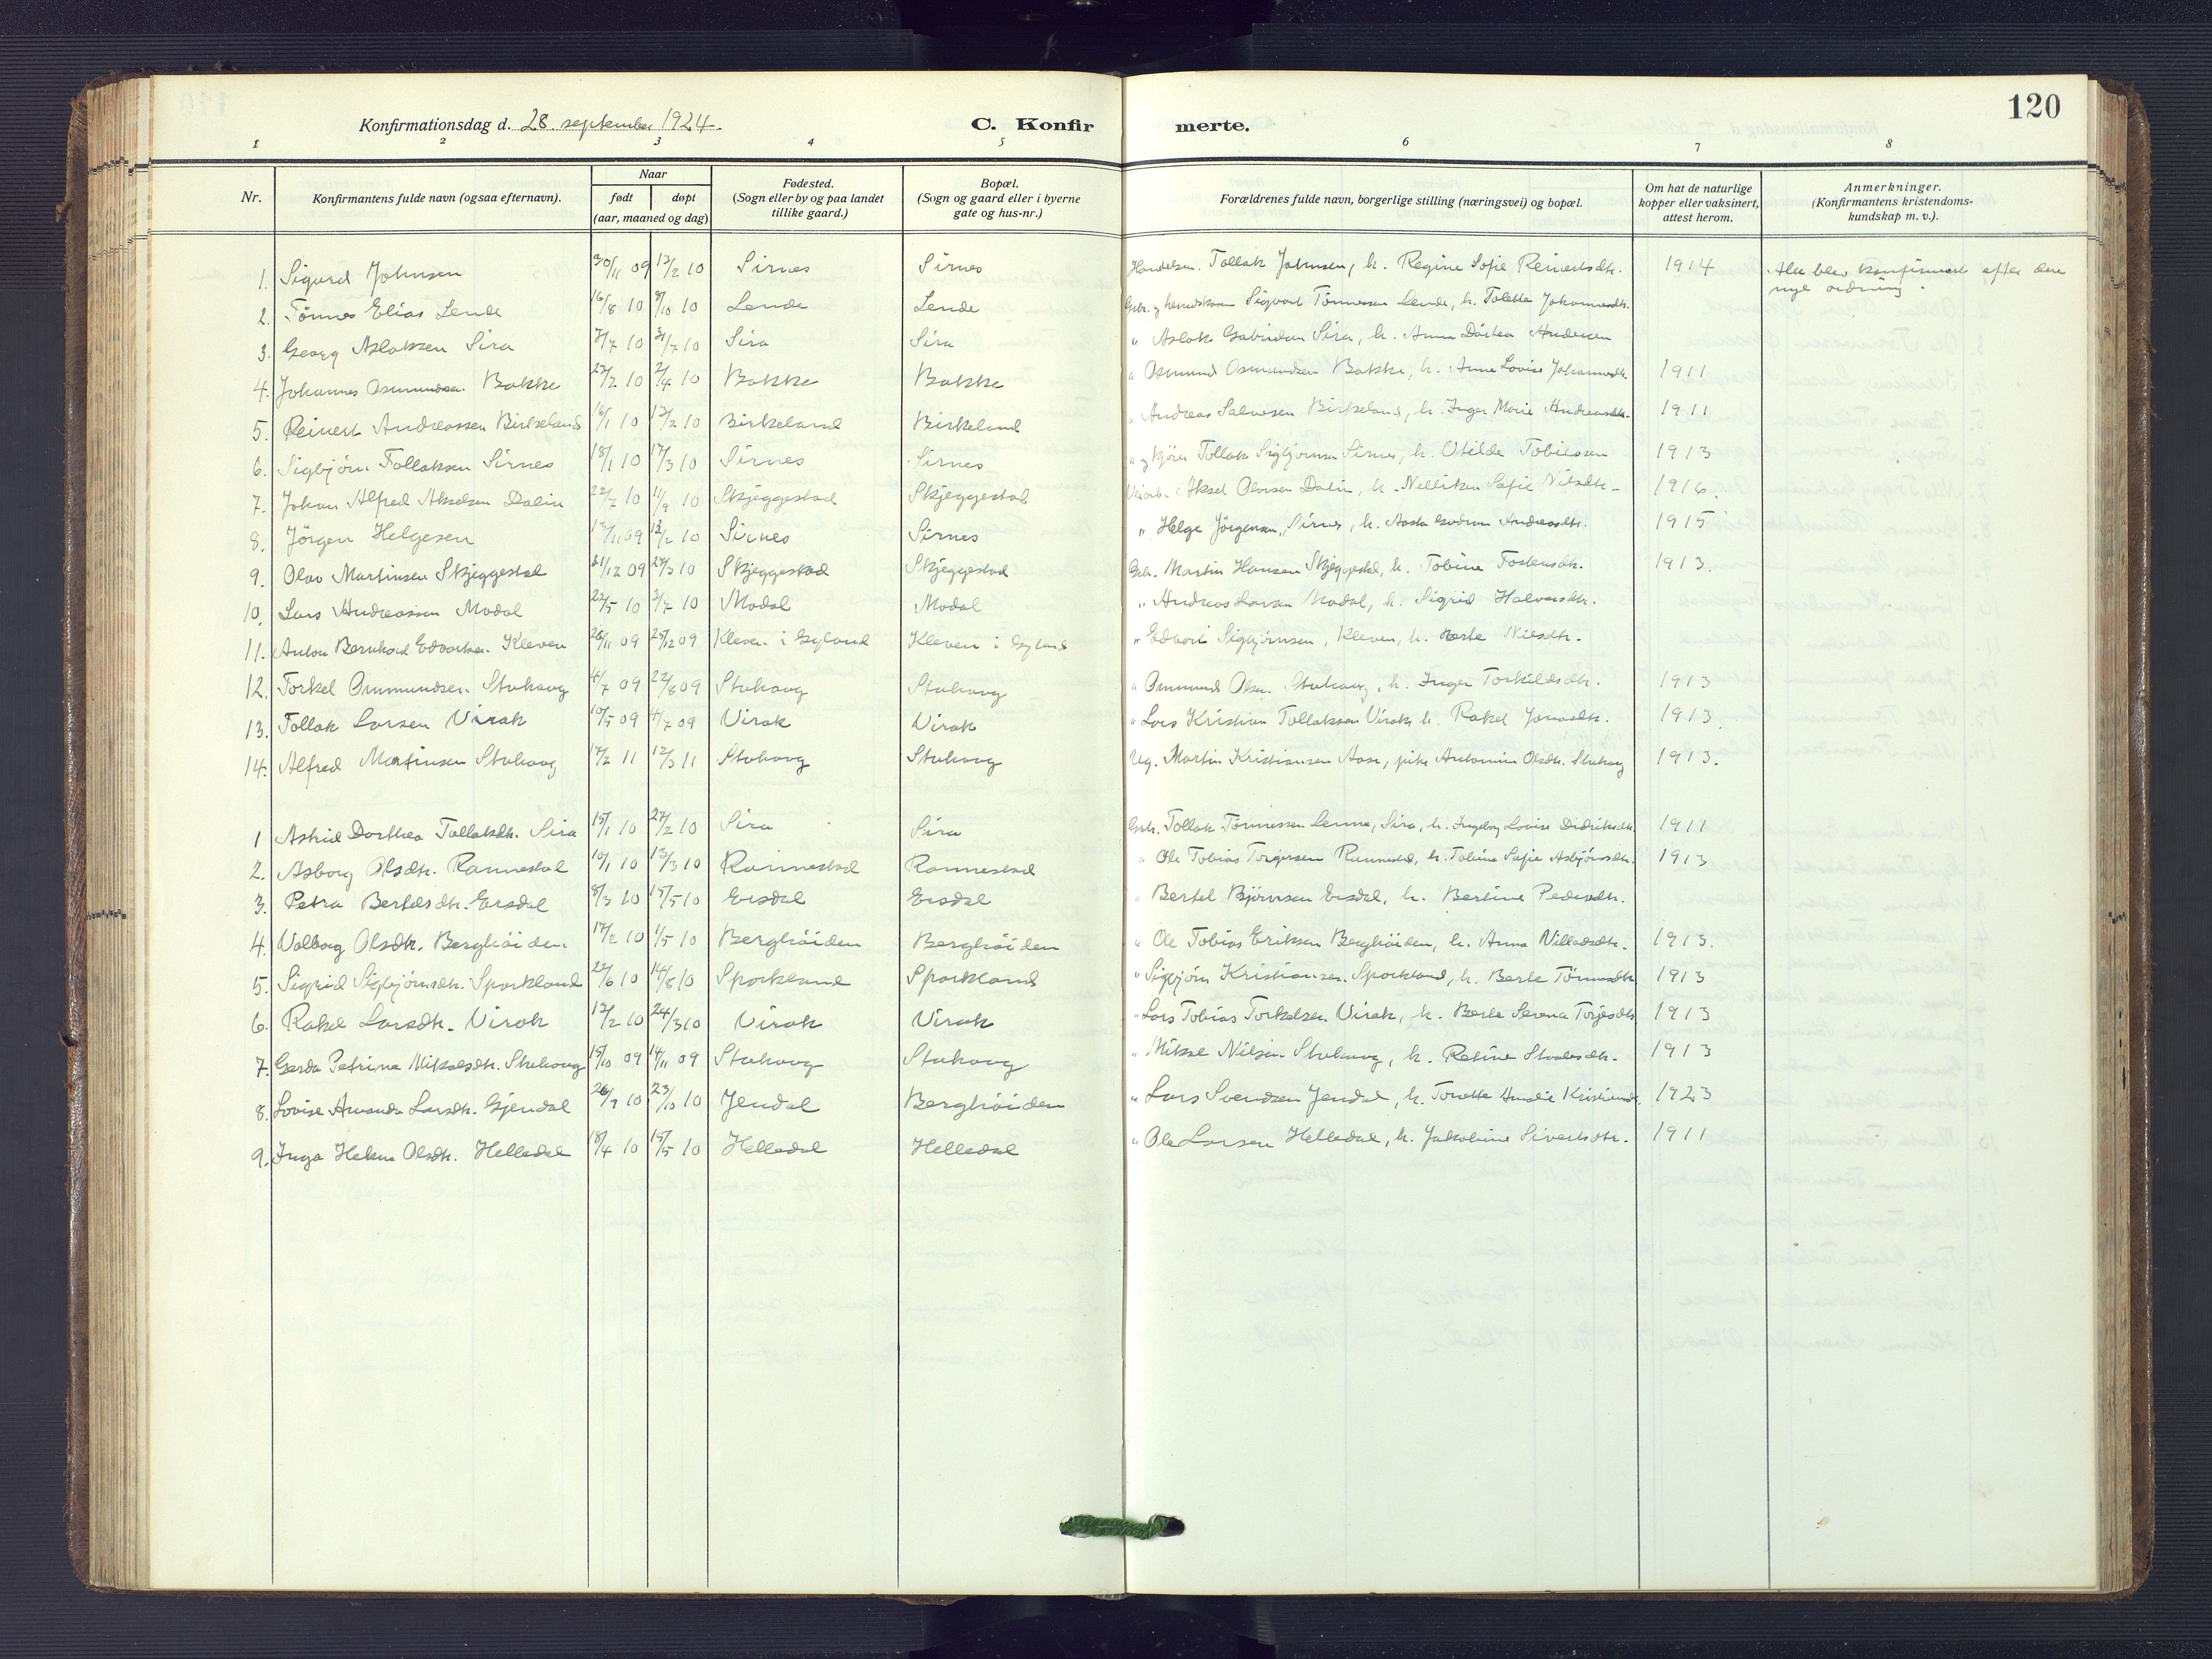 120
Konfirmationsdag d. 28. september 1924.
C. Konfirmerte.
1 2 3 4 5 6 7 8
Nr.
Konfirmantens fulde navn (ogsaa efternavn).
Naar
født døpt
(aar, maaned og dag)
Fødested.
(Sogn eller by og paa landet
tillike gaard.)
Bopæl.
(Sogn og gaard eller i byerne
gate og hus-nr.)
Forældrenes fulde navn, borgerlige stilling (næringsvei) og bopæl.
Om hat de naturlige
kopper eller vaksinert,
attest herom.
Anmerkninger.
(Konfirmantens kristendoms-
kundskap m. v.).
1. Sigurd Johnsen 30/11 09 13/2 10 Sirnes Sirnes Handelsm. Tollak Johnsen, h. Regine Sofie Reinertsdtr. 1914 Alle blev konfirmert efter den
nye ordning.
2. Tönnes Elias Lende 16/8 10 9/10 10 Lende Lende Sigvart Tönnessen Lende, h. Tolette Johannesdtr.
3. Georg Aslaksen Sira 7/7 10 31/7 10 Sira Sira " Aslak Gabrielsen Sira, h. Anna Dårtea Andersen
4. Johannes Osmundsen Bakke 27/2 10 2/4 10 Bakke Bakke " Osmund Osmundsen Bakke, h. Anne Lovise Johannesdtr. 1911
5. Reinert Andreassen Birkeland 16/1 10 13/2 10 Birkeland Birkeland " Andreas Salvesen Birkeland, h. Inger Marie Andreasdtr. 1911
6. Sigbjörn Tollaksen Sirnes 18/1 10 17/3 10 Sirnes Sirnes " Tollak Sigbjörnsen Sirnes, h. Otilde Tobiassen 1913
7. Johan Alfred Akselsen Dalin 22/7 10 11/9 10 Skjeggestad Skjeggestad Aksel Olavsen Dalin, h. Nellikea Sofie Nilsdtr. 1916.
8. Jörgen Helgesen 12/11 09 13/2 10 Sirnes Sirnes " Helge Jörgensen, Sirnes, h. Aasta Gudrun Andreasdtr. 1915
9. Olav Martinsen Skjeggestad 31/12 09 27/3 10 Skjeggestad Skjeggestad Gbr. Martin Hansen Skjeggestad, h. Tobine Tostensdtr. 1913.
10. Lars Andreassen Modal 22/5 10 3/7 10 Modal Modal " Andreas Larsen Modal, h. Sigrid Halvorsdtr.
11. Anton Bernhard Edvartsen Kleven 26/11 09 25/12 09 Kleven i Gyland Kleven i Gyland " Edvart Sigbjörnsen, Kleven, h. Berte Nilsdtr.
12. Torkel Ommundsen Stuhaug 4/7 09 22/8 09 Stuhaug Stuhaug " Ommund Olsen Stuhaug, h. Inger Torkildsdtr. 1913
13. Tollak Larsen Virak 10/5 09 4/7 09 Virak Virak " Lars Kristian Tollaksen Virak h. Rakel Jonasdtr. 1913
14. Alfred Martinsen Stuhaug 17/2 11 12/3 11 Stuhaug Stuhaug Ug. Martin Kristiansen Aase, pike Antomine Olsdtr. Stuhaug 1913.
1 Astrid Dorthea Tollaksdtr. Sira 15/1 10 27/2 10 Sira Sira Gbr. Tollak Tönnessen Lenne, Sira, h. Ingeborg Lovise Didriksdtr. 1911
2. Asborg Olsdtr. Rannestad 10/1 10 13/3 10 Rannestad Rannestad " Ole Tobias Torgersen Rannestad, h. Tobine Sofie Asbjörnsdtr. 1913
3. Petra Bertelsdtr. Ersdal 8/3 10 15/5 10 Ersdal Ersdal " Bertel Björnsen Ersdal, h. Bertine Pedersdtr.
4. Valborg Olsdtr. Berghöiden 17/2 10 1/5 10 Berghöiden Berghöiden " Ole Tobias Eriksen Berghöiden, h. Anna Villadsdtr. 1913.
5. Sigrid Sigbjörnsdtr. Sporkland 22/6 10 14/8 10 Sporkland Sporkland " Sigbjörn Kristiansen Sporkland, h. Berte Tönnesdtr. 1913
6. Rakel Larsdtr. Virak 12/2 10 24/3 10 Virak Virak " Lars Tobias Torkelsen Virak, h. Berte Serena Torjesdtr. 1913
7. Gerda Petrine Mikalsdtr. Stuhaug 15/10 09 14/11 09 Stuhaug Stuhaug " Mikal Nilsen Stuhaug, h. Retine 1913
8. Lovise Amanda Larsdtr. Gjendal 26/9 10 23/10 10 Jendal Berghöiden " Lars Svendsen Jendal, h. Tonette Amalie 1923
9. Inga Helene Olsdtr. Helledal 18/4 10 15/5 10 Helledal Helledal " Ole Larsen Helledal, h. Jakobine Sivertsdtr. 1911